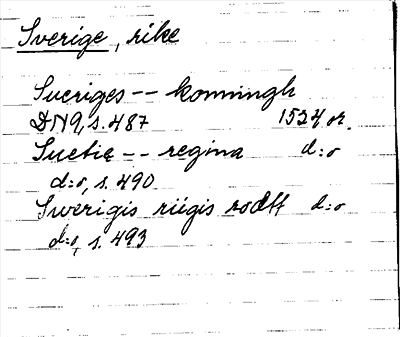 Sverige, rike
Sueriges -- konningh
DN9, s. 487 1524 or.
Suetie -- regina d:o
d:o, s. 490
Swerigis riigis rodtt d:o
d:o, s. 493